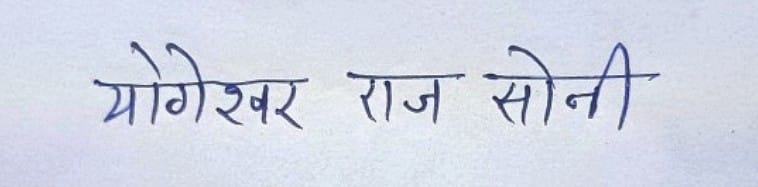 योगेश्वर राज सोनी